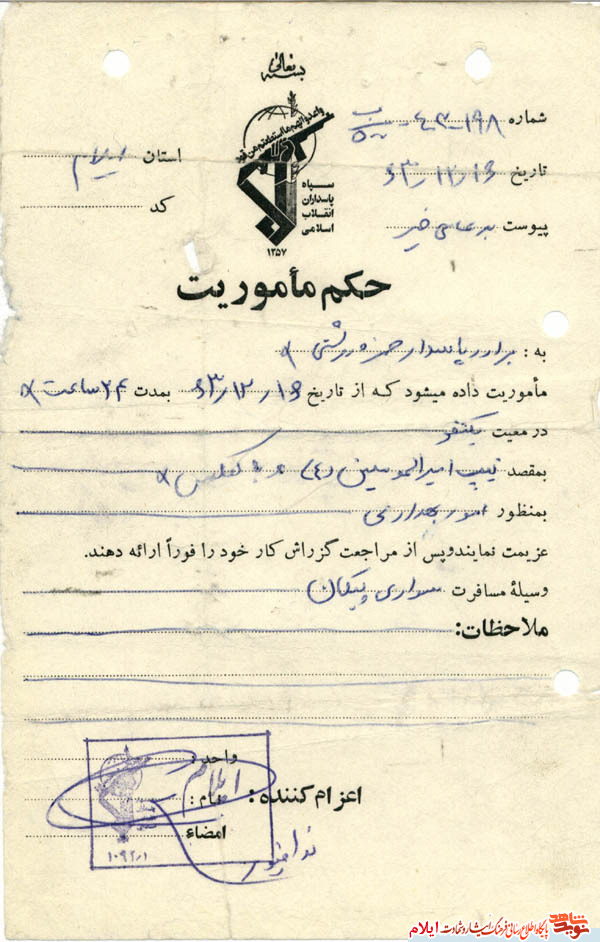 بسمه تعالی
واعدوا لهم ما استطعتم من قوة
شماره ۱۹۸-۴۰۳-
استان ایلام
تاریخ ۶۳/۱۲/۱۶
کد
پیوست
سپاه
پاسداران
انقلاب
اسلامی
۱۳۵۷
حکم مأموریت
به: برادر پاسدار حمزه رشتی
مأموریت داده میشود که از تاریخ ۶۳/۱۲/۱۶ بمدت ۲۴ ساعت
در معیت یکنفر
بمقصد تیپ امیرالمومنین (ع) و باکمکس
بمنظور امور بهداری
عزیمت نمایند و پس از مراجعت گزراش کار خود را فوراً ارائه دهند.
وسیلهٔ مسافرت سواری پیکان
ملاحظات:
اعزام کننده:
واحد:
نام:
امضاء
ایلام
۱۰۹۲/۱
نوید شاهد
پایگاه اطلاع رسانی فرهنگ ایثار و شهادت ایلام